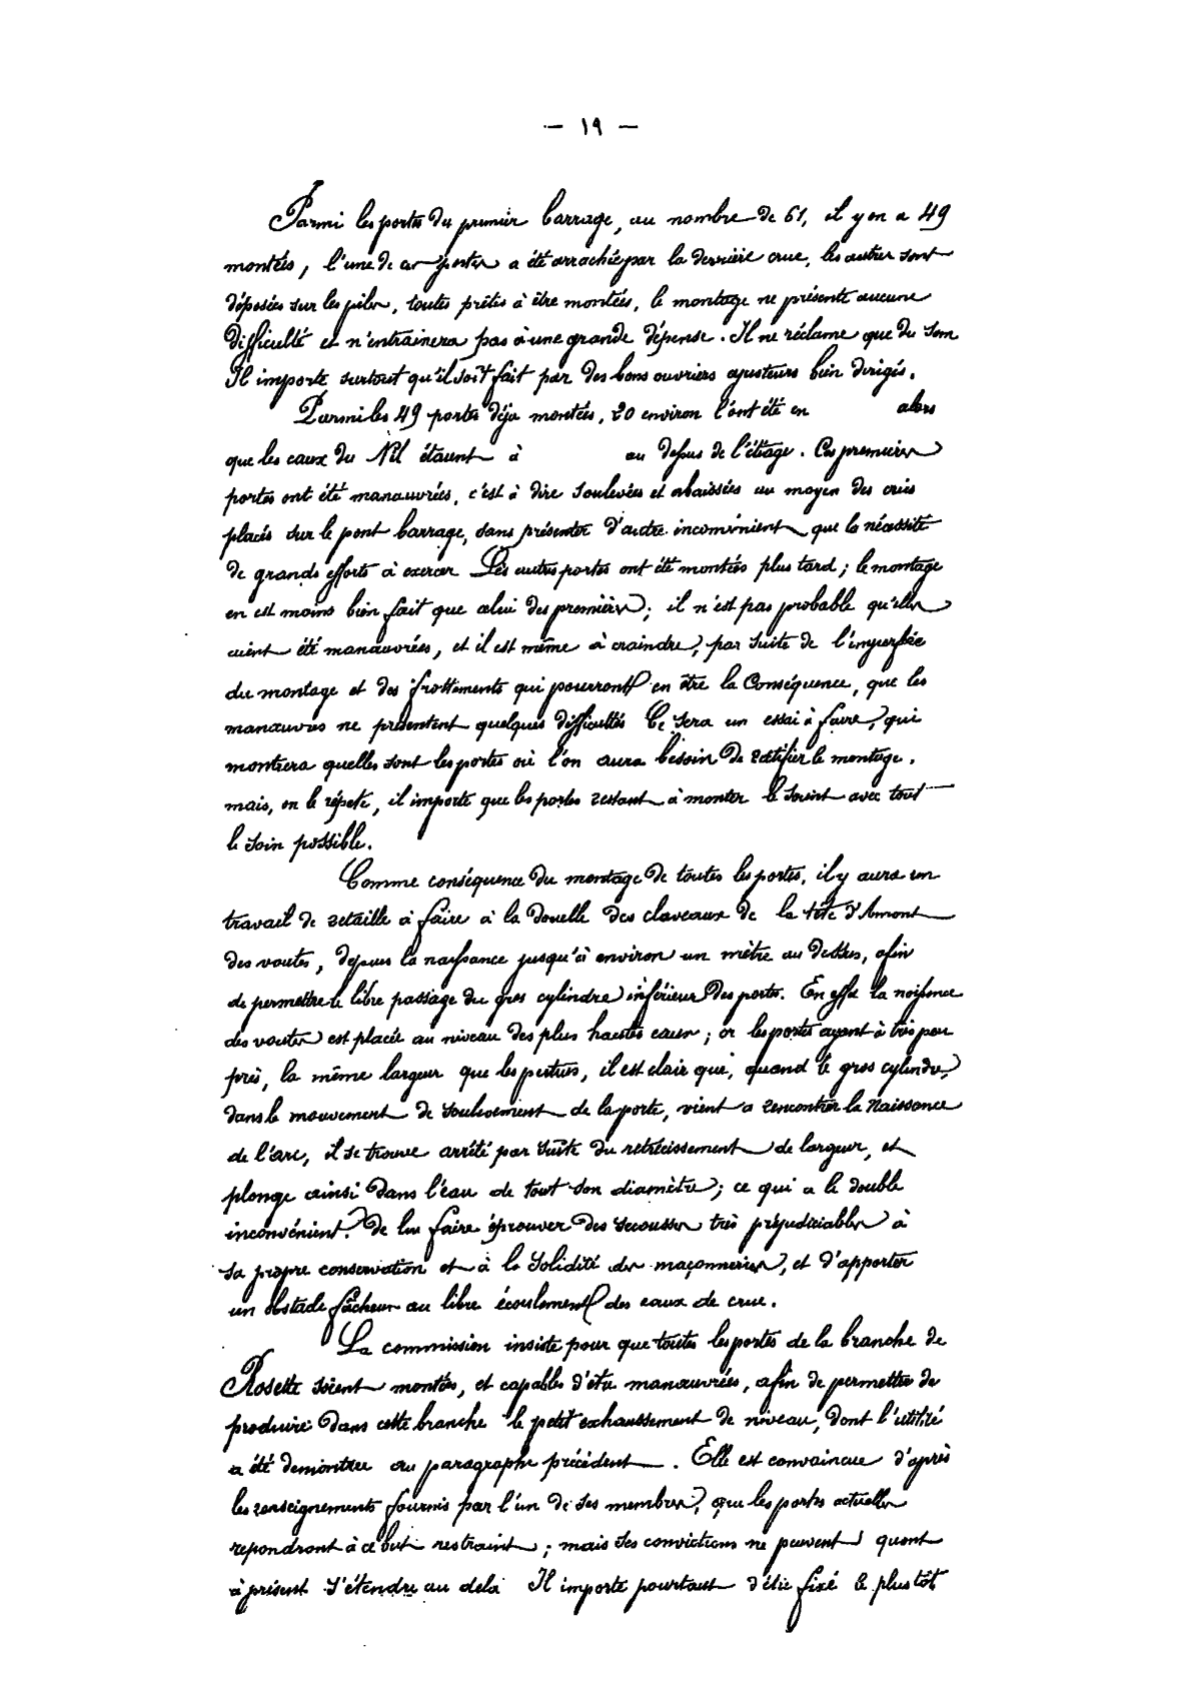 — ١٩ —
Parmi les portes du premier barrage, au nombre de 61, il y en a 49
montées, l'une de ces portes a été arrachée par la dernière crue, les autres sont
déposées sur les piles, toutes prêtes à être montées, le montage ne présente aucune
difficulté et n'entrainera pas à une grande dépense. Il ne réclame que du soin
Il importe surtout qu'il soit fait par des bons ouvriers ajusteurs bien dirigés.
Parmi les 49 portes déja montées, 20 environ l'ont été en alors
que les eaux du Nil étaient à au dessus de l'étiage. Ces premières
portes ont été manœuvrées, c'est à dire soulevées et abaissées au moyen des crics
placés sur le pont barrage, sans présenter d'autre inconvénient que la nécessité
de grands efforts à exercer Les autres portes ont été montées plus tard; le montage
en est moins bien fait que celui des premières; il n'est pas probable qu'elles
aient été manœuvrées, et il est même à craindre, par suite de l'imperfée
du montage et des frottements qui pourront en être la Conséquence, que les
manœuvres ne présentent quelques difficultés Ce sera un essai à faire, qui
montrera quelles sont les portes où l'on aura besoin de rectifier le montage.
mais, on le répète, il importe que les portes restant à monter le soient avec tout
le soin possible.
Comme conséquence du montage de toutes les portes, il y aura un
travail de retaille à faire à la douelle des claveaux de la tête d'Amont
des voutes, depuis la naissance jusqu'à environ un mètre au dessus, afin
de permettre le libre passage du gros cylindre inférieur des portes. En effet la naissance
des voutes est placée au niveau des plus hautes eaux; or les portes ayant à très peu
près, la même largeur que les pertuis, il est clair que, quand le gros cylindre,
dans le mouvement de soulèvement de la porte, vient à rencontrer la Naissance
de l'arc, il se trouve arrêté par suite du retrécissement de largeur, et
plonge ainsi dans l'eau de tout son diamètre; ce qui a le double
inconvénient de lui faire éprouver des secousses très préjudiciables à
sa propre conservation et à la solidité des maçonneries, et d'apporter
un obstacle fâcheux au libre écoulement des eaux de crue.
La commission insiste pour que toutes les portes de la branche de
Rosette soient montées, et capables d'être manœuvrées, afin de permettre de
produire dans cette branche le petit exhaussement de niveau, dont l'utilité
a été démontrée au paragraphe précédent. Elle est convaincue d'après
les renseignements fournis par l'un de ses membres, que les portes actuelles
repondront à ce but restraint; mais ses convictions ne peuvent quant
à présent s'étendre au delà Il importe pourtant d'être fixé le plus tôt